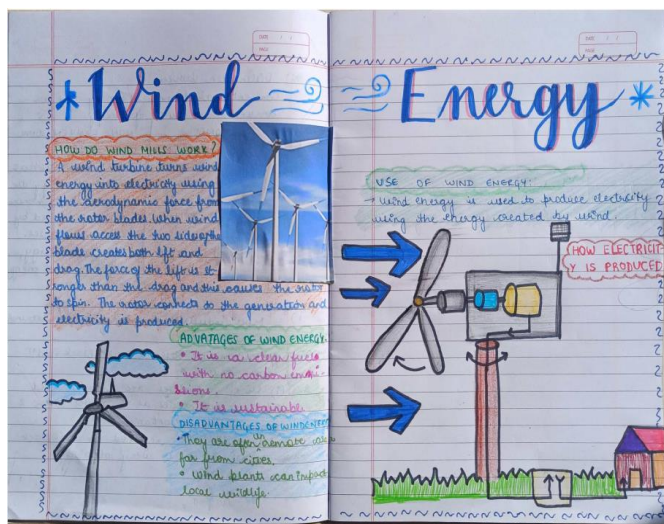 DATE / /
PAGE
DATE / /
PAGE
Wind
HOW DO WIND MILLS WORK?
A wind turbine turns wind
energy into electricity using
the aerodynamic force from
the rotor blades, when wind
flows access the two side of the
blade creates both lift and
drag. The force of the lift is st
ronger than the drag and this causes the rotor
to spin. The rotor connects to the generator and
electricity is produced.
ADVATAGES OF WIND ENERGY.
• It is a clear fuel
with no carbon emmi-
sions.
• It is sustainable
DISADVANTAGES OF WIND ENERGY
• They are often in remote
far from cities.
• Wind plants can impact
local wildlife.
Energy
USE OF WIND ENERGY:
→ Wind energy is used to produce electricity
using the energy created by wind
HOW ELECTRICIT
Y IS PRODUCED